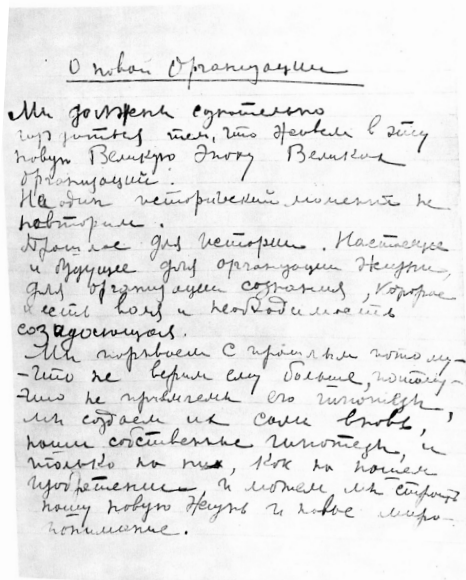 О новой Организации
Мы должны сознательно
гордиться тем, что живем в эту
новую Великую Эпоху Великих
Организаций.
Ни один исторический момент не
повторим.
Прошлое для истории. Настоящее
и будущее для организации жизни,
для организации сознания, которое
есть воля и необходимость
созидающая.
Мы порываем с прошлым потому-
-что не верим ему больше, потому-
-что не приемлем его гипотезы,
мы создаем их сами вновь,
наши собственные гипотезы, и
только на них, как на нашем
изобретении и можем мы строить
нашу новую жизнь и новое миро-
понимание.